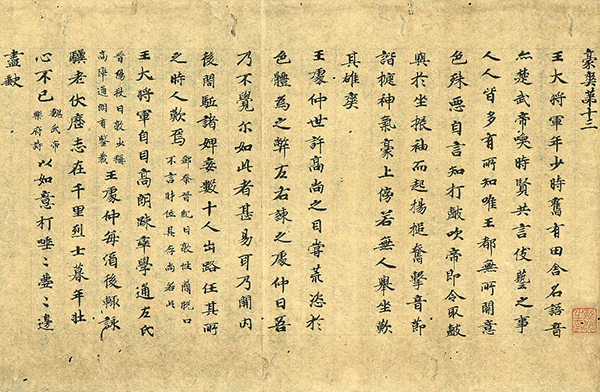 豪爽第十三
王大將軍年少時舊有田舍名語音
亦楚武帝喚時賢共言伎藝之事
人人皆多有所知唯王都無所關意
色殊惡自言知打鼓吹帝即令取鼓
與於坐振袖而起揚槌奮擊音節
諧捷神氣豪上傍若無人舉坐歎
其雄爽
王處仲世許高尚之目嘗荒恣於
色體為之弊左右諫之處仲曰吾
乃不覺尔如此者甚易耳乃開內
後閤駈諸婢妾數十人出路任其所
之時人歎焉
鄧粲晉紀曰敦性簡脫口
不言財位其存尚若此
王大將軍自目高朗踈率學通左氏
晉陽秋曰敦少稱
高率通朗有鑒裁
王處仲每酒後輒詠
驥老伏櫪志在千里烈士暮年壯
心不已
魏武帝
樂府詩
以如意打唾〻壺〻邊
盡缺